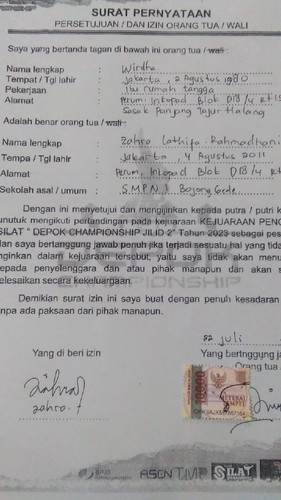 SURAT PERNYATAAN
PERSETUJUAN / DAN IZIN ORANG TUA / WALI
Saya yang bertanda tagan di bawah ini orang tua / wali :
Nama lengkap : Wirdha
Tempat / Tgl lahir : Jakarta, 2 Agustus 1980
Pekerjaan : Ibu rumah tangga
Alamat : Perum. Inkopad Blok D18/4 RT
Sasak Panjang Tajur Halang
Adalah benar orang tua / wali :
Nama lengkap : Zahra Lathifa Rahmadhani
Tempa / Tgl lahir : Jakarta, 4 Agustus 2011
Alamat : Perum, Inkopad Blok D18/4 RT
Sekolah asal / umum : S.M.P.N. 1 Bojong Gede
Dengan ini menyetujui dan mengijinkan kepada putra / putri k
unutuk mengikuti pertandingan pada kejuaraan KEJUARAAN PENC
SILAT " DEPOK CHAMPIONSHIP JILID 2" Tahun 2023 sebagai pes
dan saya bertanggung jawab penuh jika terjadi sesuatu hal yang tida
inginkan dalam kejuaraan tersebut, yaitu saya tidak akan menu
kepada penyelenggara dan atau pihak manapun dan akan s
elesaikan secara kekeluargaan.
Demikian surat izin ini saya buat dengan penuh kesadaran
npa ada paksaan dari pihak manapun.
22 juli
Yang di beri izin
Yang bertnggung ja
Orang tua
zahra
10000
METERAI
TEMPEL
SILAT